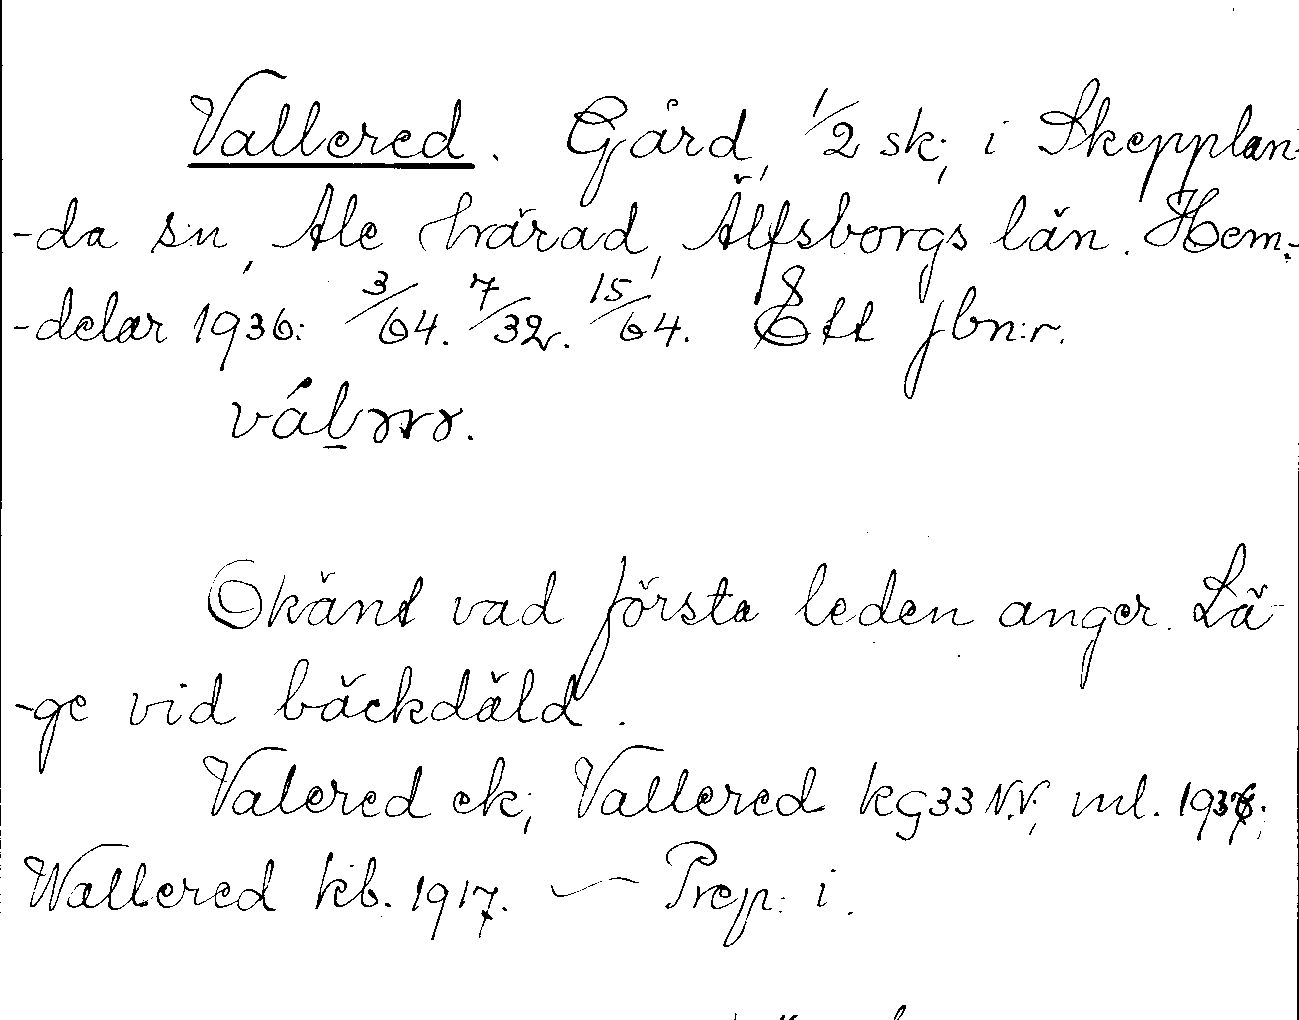 Vallered. Gård, 1/2 sk., i Skepplan-
-da sn, Ale härad, Älfsborgs län. Hem-
-delar 1936: 3/64. 7/32. 15/64. Ett jbn:r.
Okänt vad första leden anger. Lä-
-ge vid bäckdäld.
Valered ek; Vallered kg 33 N.V; ml.
Wallered kb. 1917. — Prep: i.